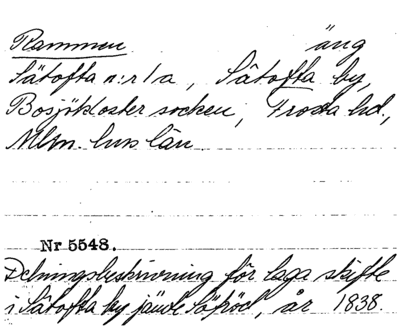 Rammen äng
Sätofta n:r 1 a, Sätofta by,
Bosjökloster socken, Frosta hd.,
Mlm. hus län
Nr 5548.
Delningsbeskrivning för laga skifte
i Sätofta by jämte år 1838.